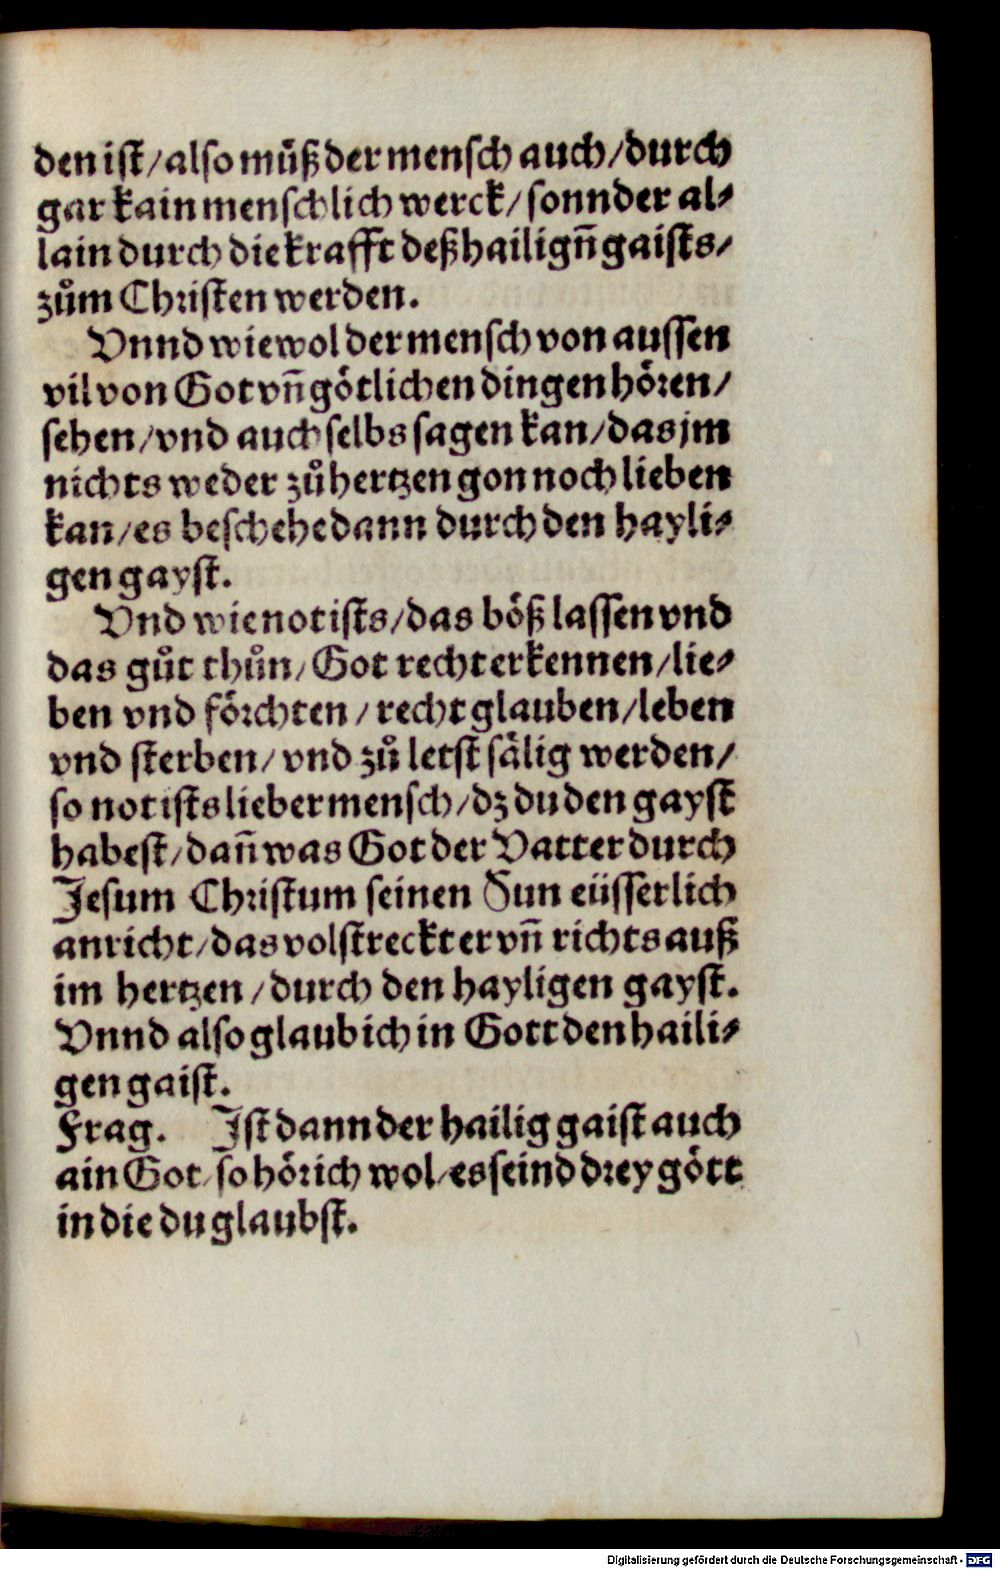 den ist / also muͦß der mensch auch / durch
gar kain menschlich werck / sonnder al⸗
lain durch die krafft deß hailigñ gaists /
zuͦm Christen werden.
Vnnd wiewol der mensch von aussen
vil von Got vñ goͤtlichen dingen hoͤren /
sehen / vnd auch selbs sagen kan / das jm
nichts weder zuͦ hertzen gon noch lieben
kan / es beschehe dann durch den hayli⸗
gen gayst.
Vnd wie not ists / das boͤß lassen vnd
das guͦt thuͦn / Got recht erkennen / lie⸗
ben vnd foͤrchten / recht glauben / leben
vnd sterben / vnd zuͦ letst saͤlig werden /
so not ists lieber mensch / dz du den gayst
habest / dañ was Got der Vatter durch
Jesum Christum seinen Sun eüsserlich
anricht / das volstreckt er vñ richts auß
im hertzen / durch den hayligen gayst.
Vnnd also glaub ich in Gott den haili⸗
gen gaist.
Frag. Ist dann der hailig gaist auch
ain Got / so hoͤr ich wol / es seind drey goͤtt
in die du glaubst.
Digitalisierung gefördert durch die Deutsche Forschungsgemeinschaft - DFG